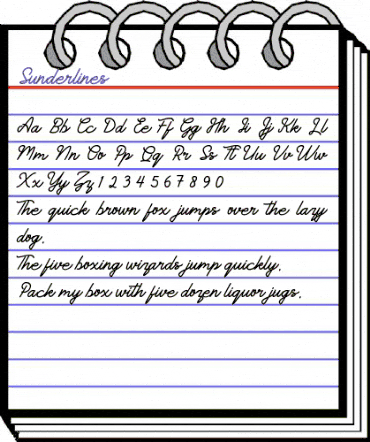 Sunderlines
Aa Bb Cc Dd Ee Ff Gg Hh Ii Jj Kk Ll
Mm Nn Oo Pp Qq Rr Ss Tt Uu Vv Ww
Xx Yy Zz 1 2 3 4 5 6 7 8 9 0
The quick brown fox jumps over the lazy
dog.
The five boxing wizards jump quickly.
Pack my box with five dozen liquor jugs.